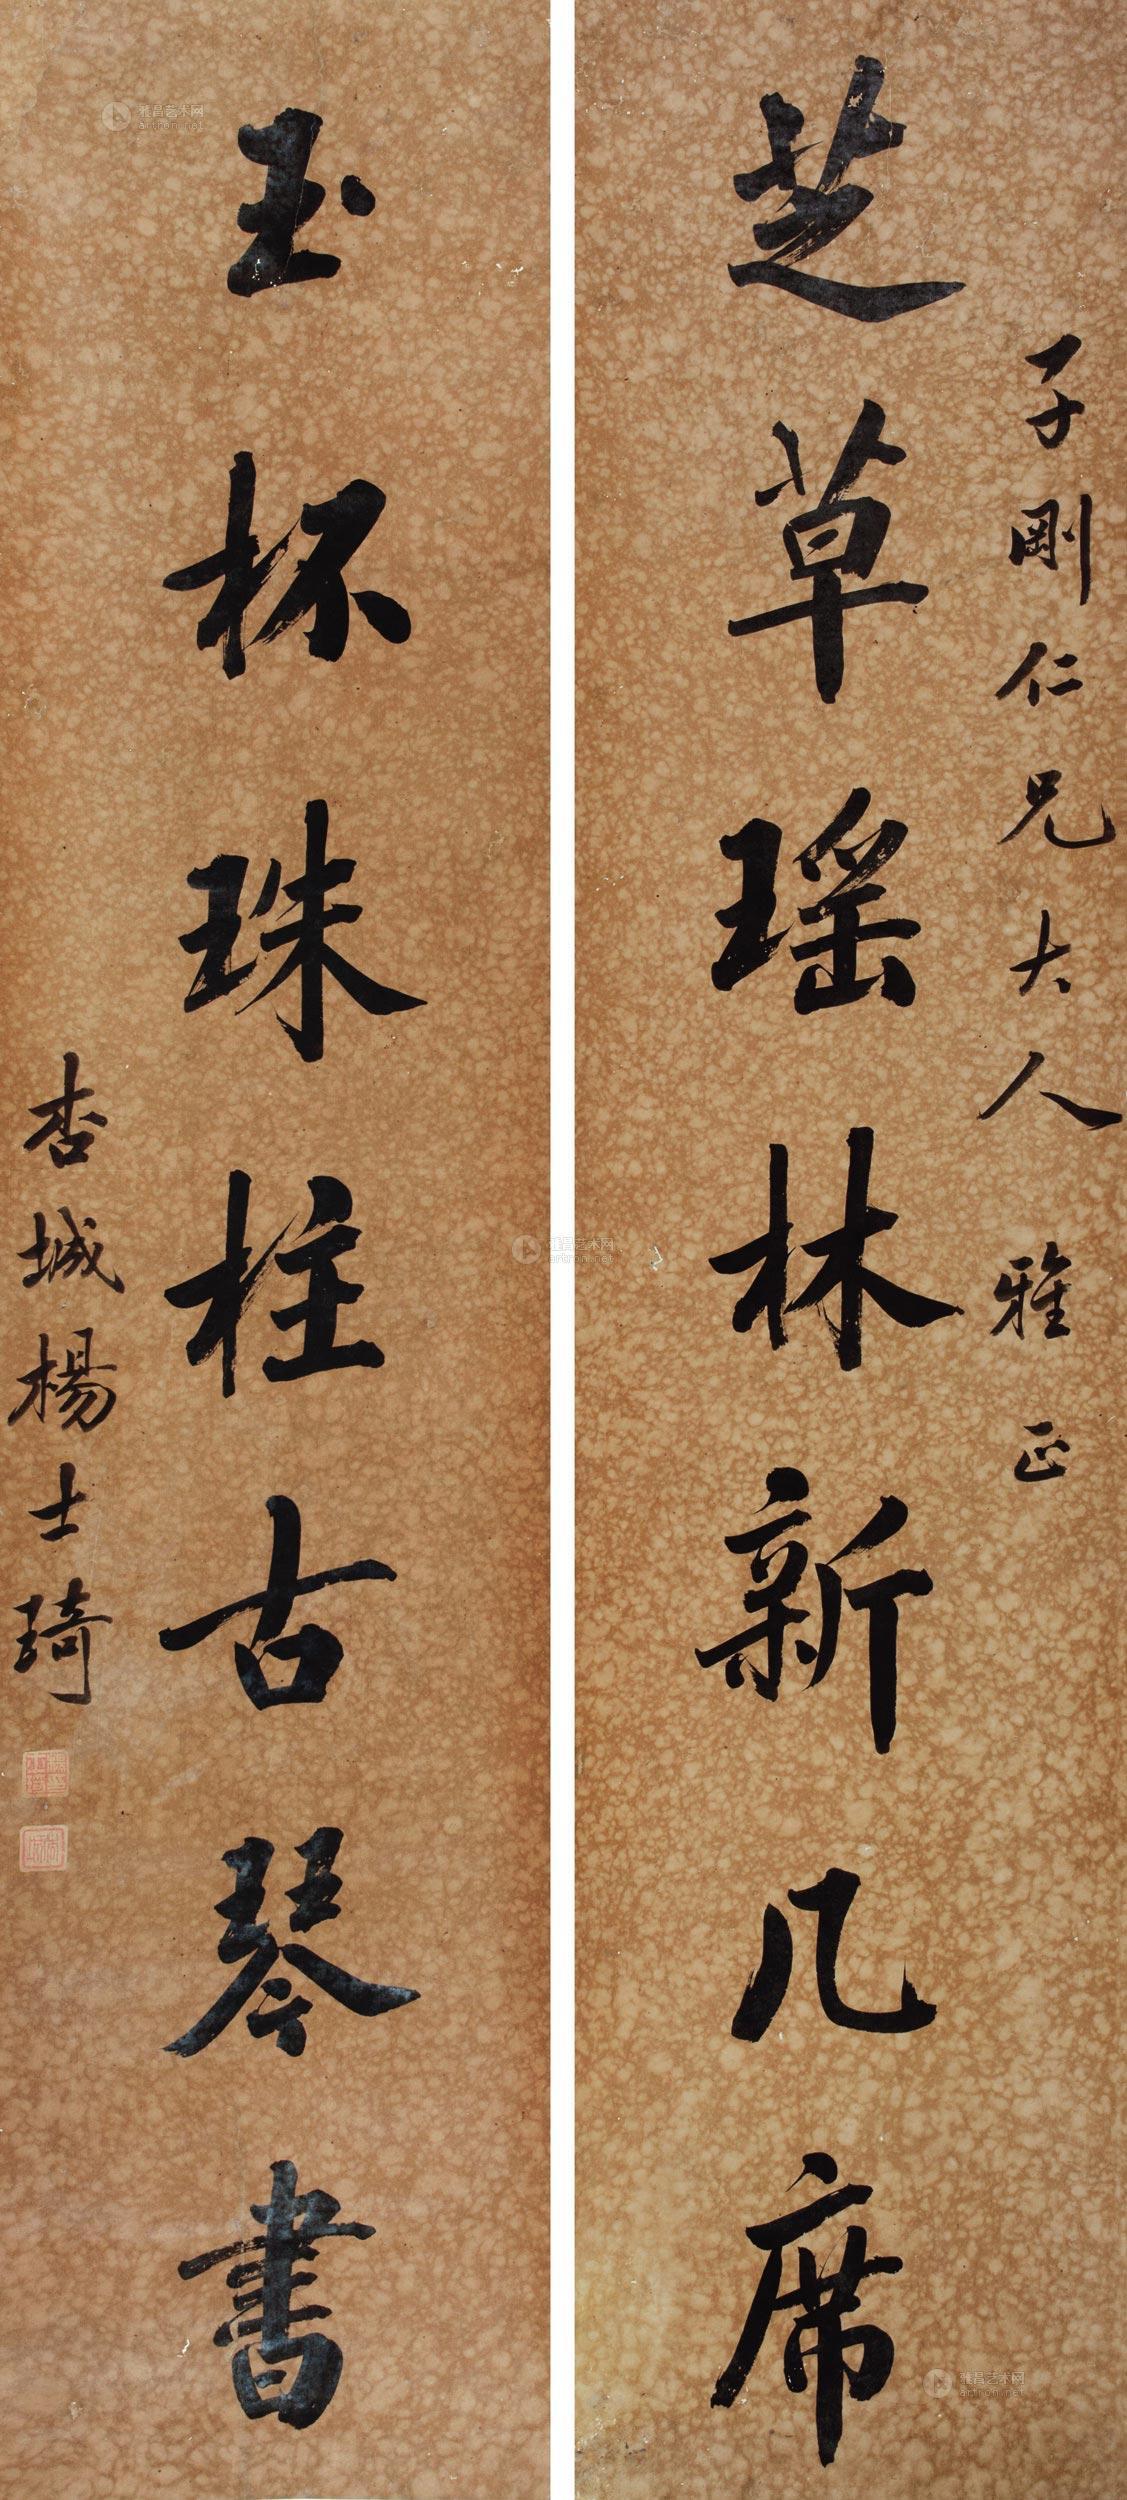 子剛仁兄大人雅正
芝草瑶林新几席
玉杯珠柱古琴書
杏城楊士琦
雅昌艺术网
artron.net
雅昌艺术网
artron.net
雅昌艺术网
artron.net